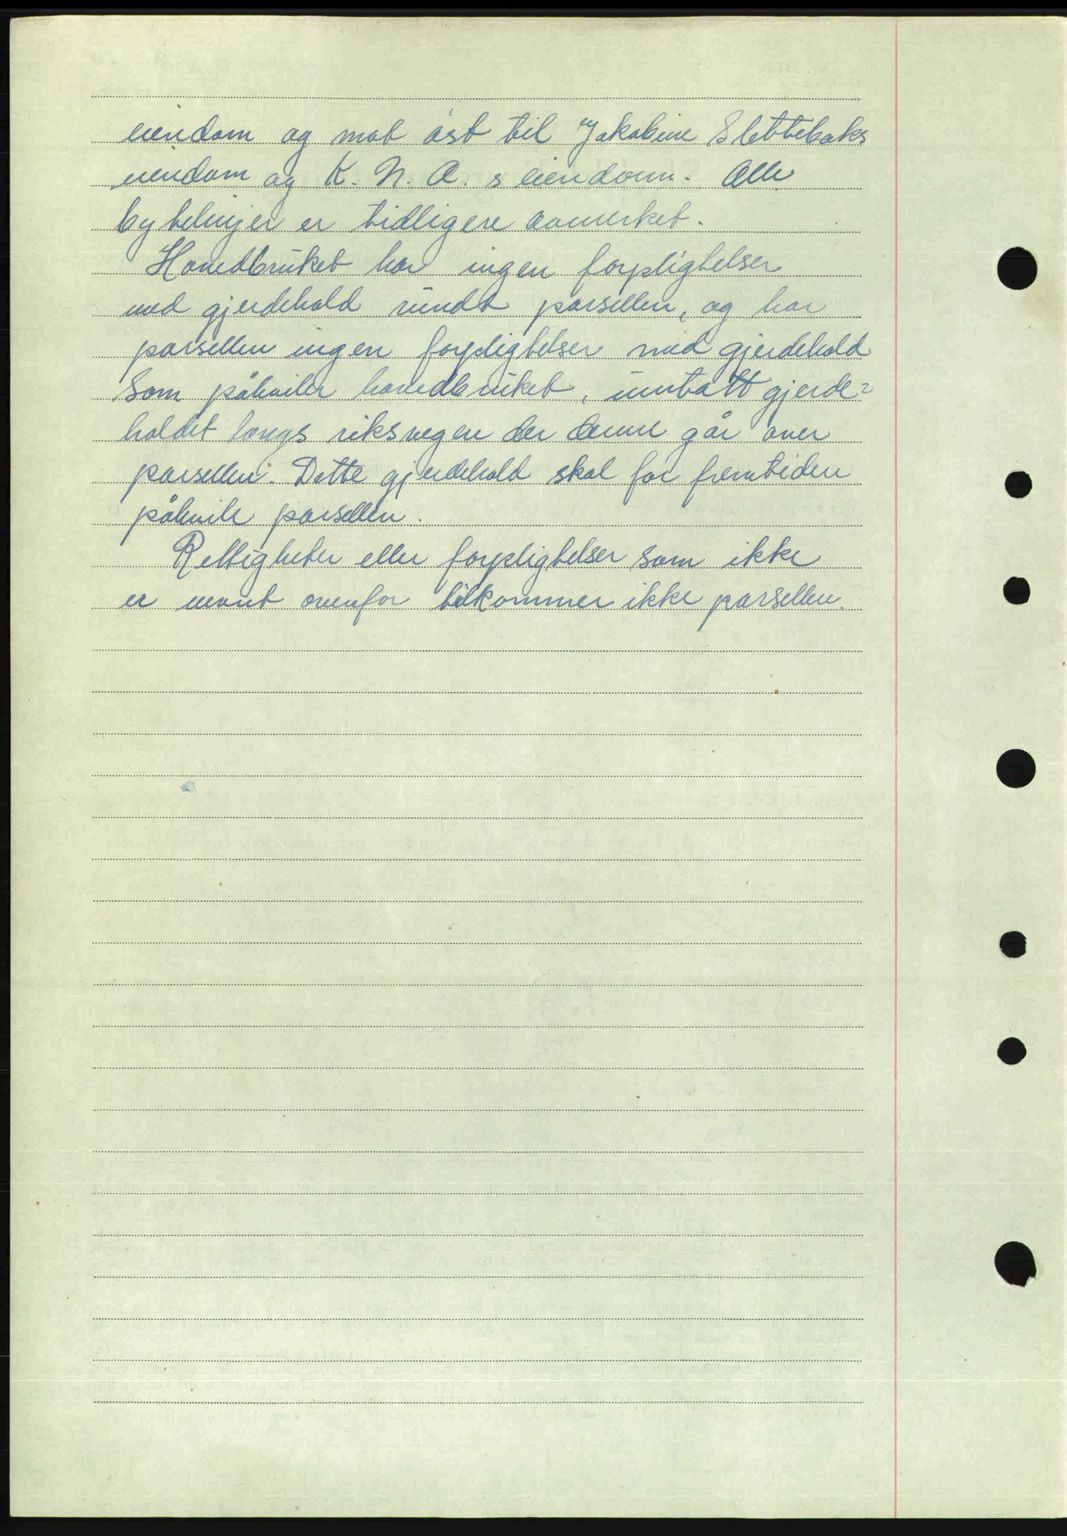 eiendom og mot øst til Jakobine Slettebaks
eiendom og K. N. A. s eiendom. Alle
bytelinjer er tidligere avmerket.
Hovedbruket har ingen forpligtelser
med gjerdehold rundt parsellen, og har
parsellen ingen forpligtelser med gjerdehold
som påhviler hovedbruket, unntatt gjerde=
holdet langs riksvegen der denne går over
parsellen. Dette gjerdehold skal for fremtiden
påhvile parsellen.
Rettigheter eller forpligtelser som ikke
er nevnt ovenfor tilkommer ikke parsellen.